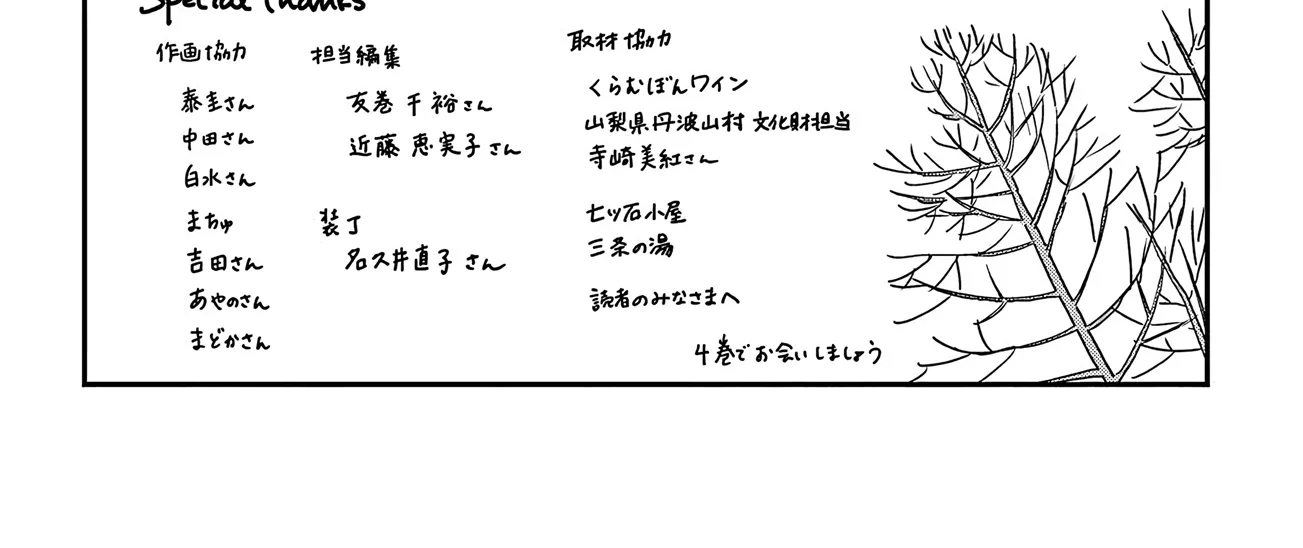 Special Thanks
作画協力
泰圭さん
中田さん
白水さん
まちゅ
吉田さん
あやのさん
まどかさん
担当編集
友巻 千裕さん
近藤 恵実子さん
装丁
名久井直子さん
取材協力
くらむぼんワイン
山梨県丹波山村 文化財担当
寺崎美紅さん
七ツ石小屋
三条の湯
読者のみなさまへ
4巻でお会いしましょう